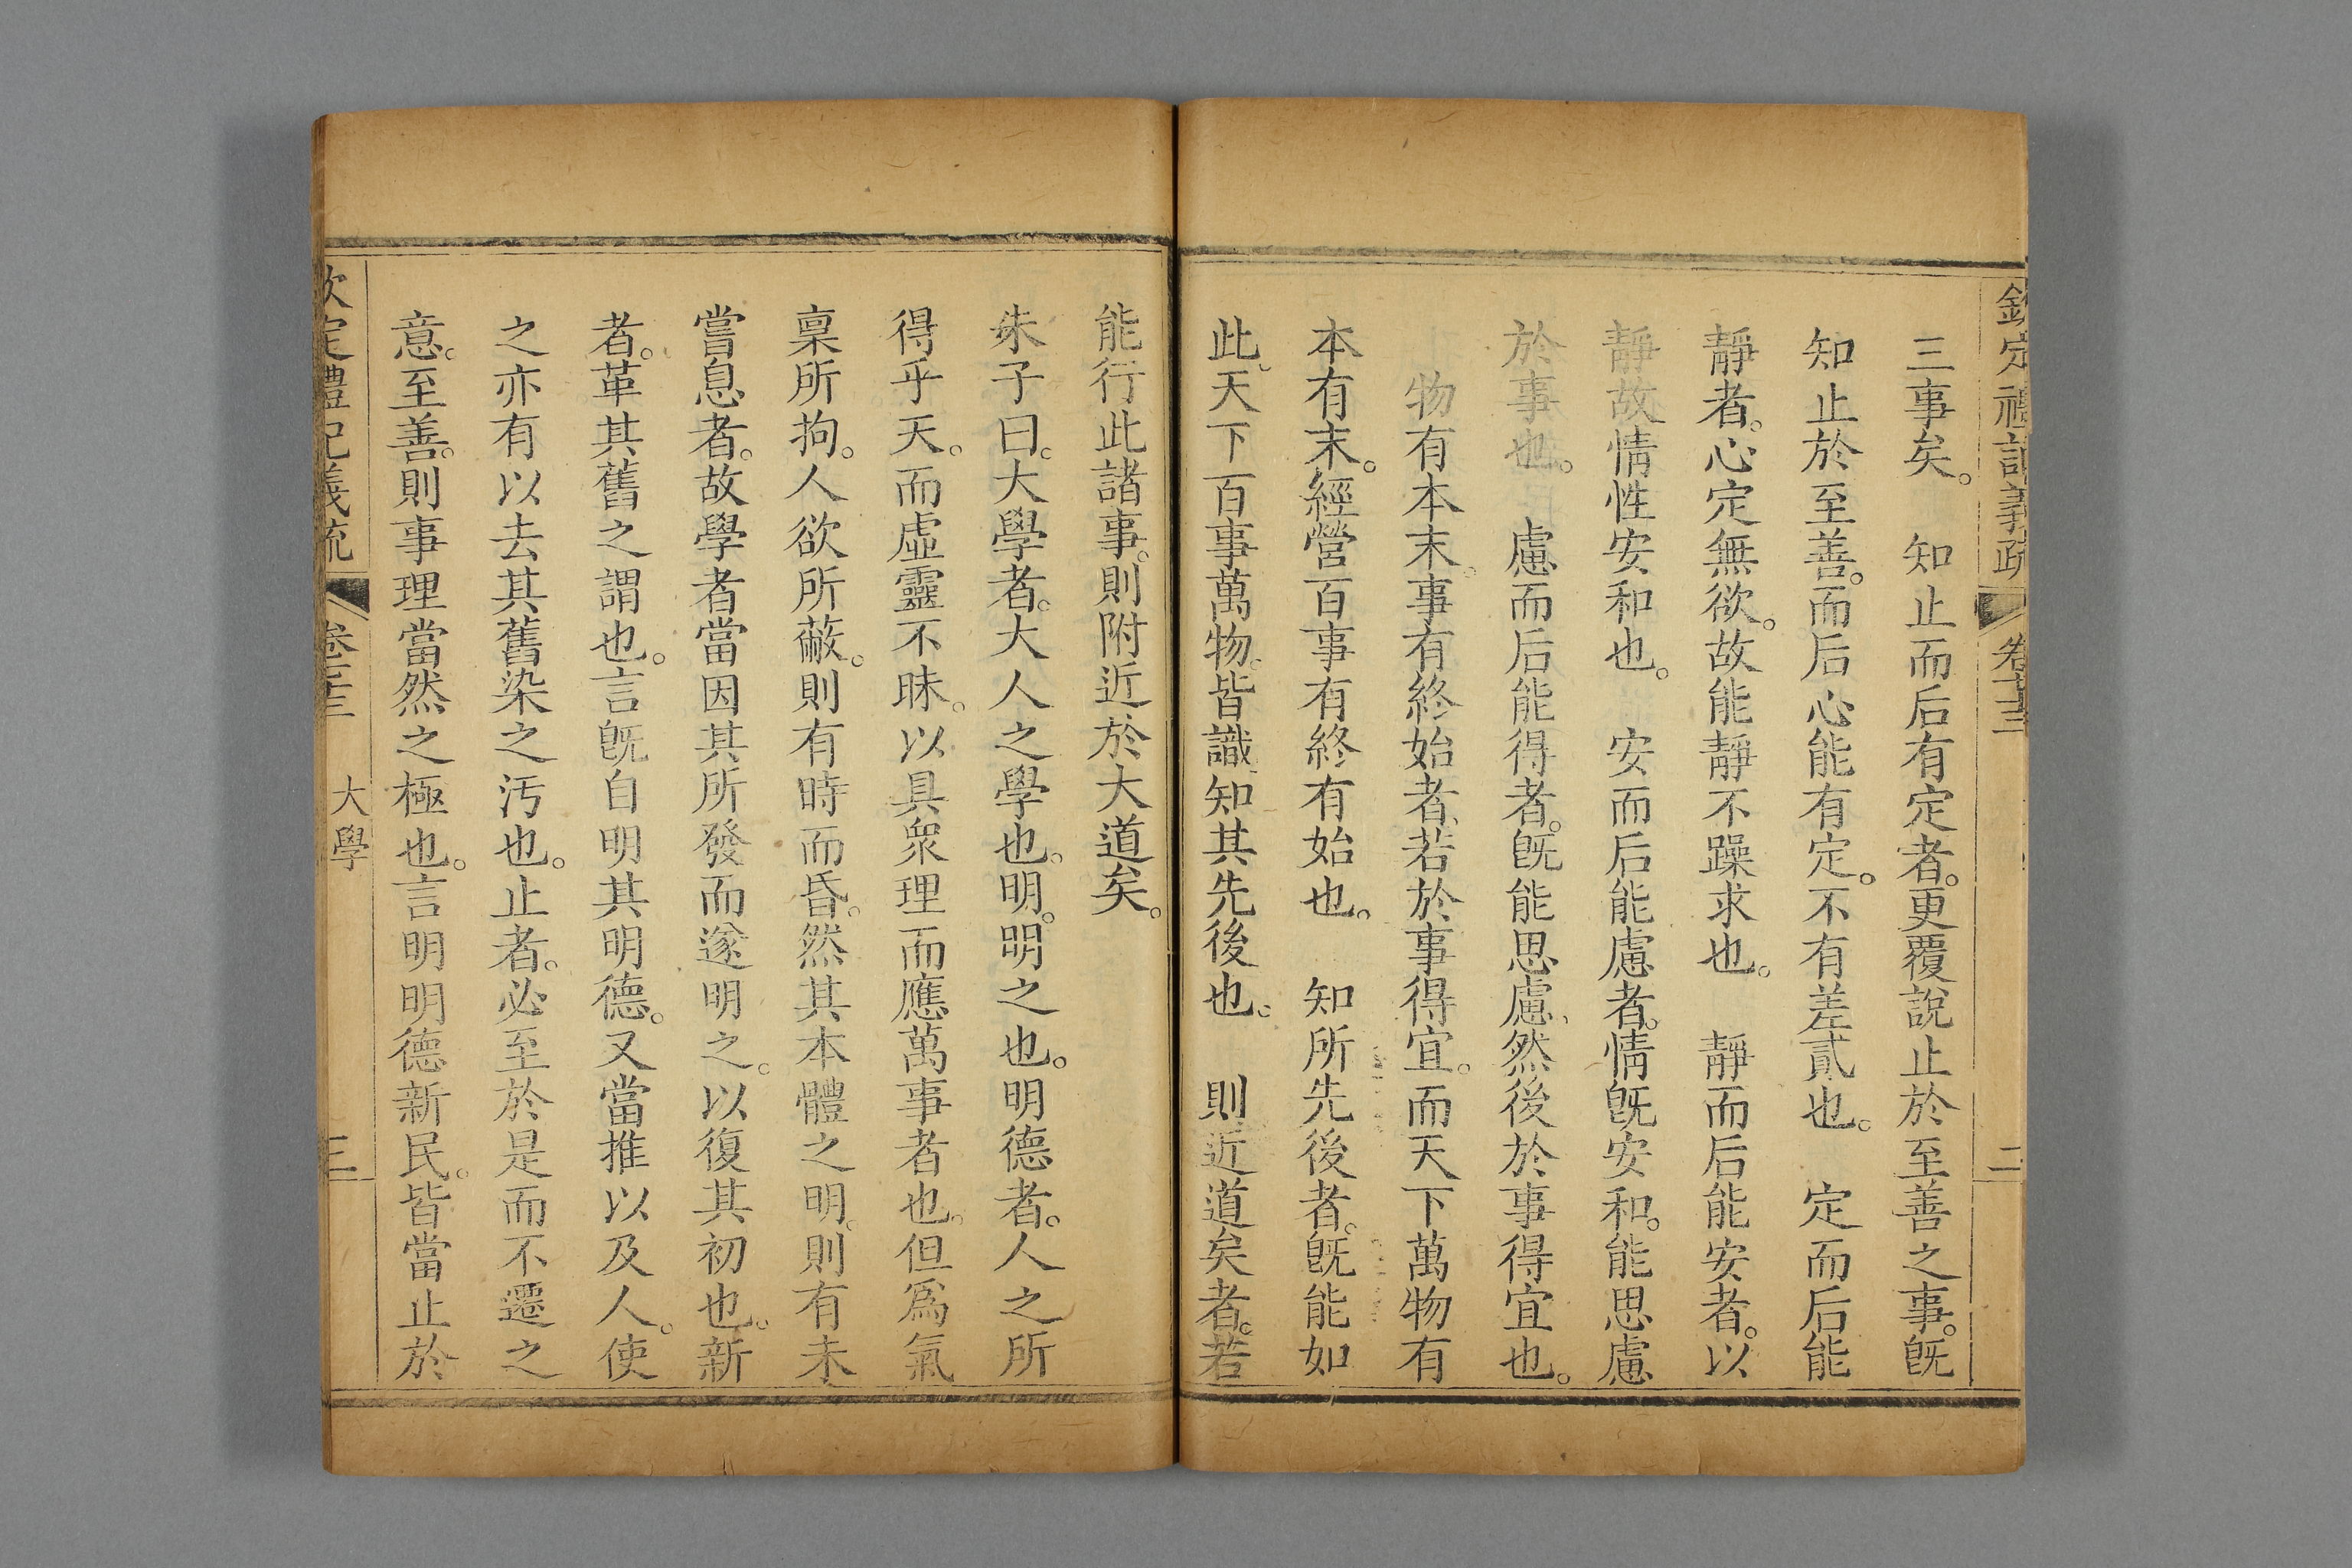 欽定禮記義疏 卷七十三 二
三事矣。 知止而后有定者。更覆說止於至善之事。旣
知止於至善。而后心能有定。不有差貳也。 定而后能
靜者。心定無欲。故能靜不躁求也。 靜而后能安者。以
靜故情性安和也。 安而后能慮者。情旣安和。能思慮
於事也。 慮而后能得者。旣能思慮、然後於事得宜也。
物有本末。事有終始者、若於事得宜。而天下萬物有
本有末。經營百事有終有始也。 知所先後者。旣能如
此、天下百事萬物。皆識知其先後也。 則近道矣者。若
能行此諸事。則附近於大道矣。
朱子曰。大學者。大人之學也。明。明之也。明德者。人之所
得乎天。而虛靈不昧。以具衆理而應萬事者也。但爲氣
稟所拘。人欲所蔽。則有時而昏。然其本體之明。則有未
嘗息者。故學者當因其所發而遂明之。以復其初也。新
者。革其舊之謂也。言旣自明其明德。又當推以及人。使
之亦有以去其舊染之汚也。止者。必至於是而不遷之
意。至善。則事理當然之極也。言明明德新民。皆當止於
欽定禮記義疏 卷七十三 大學 三